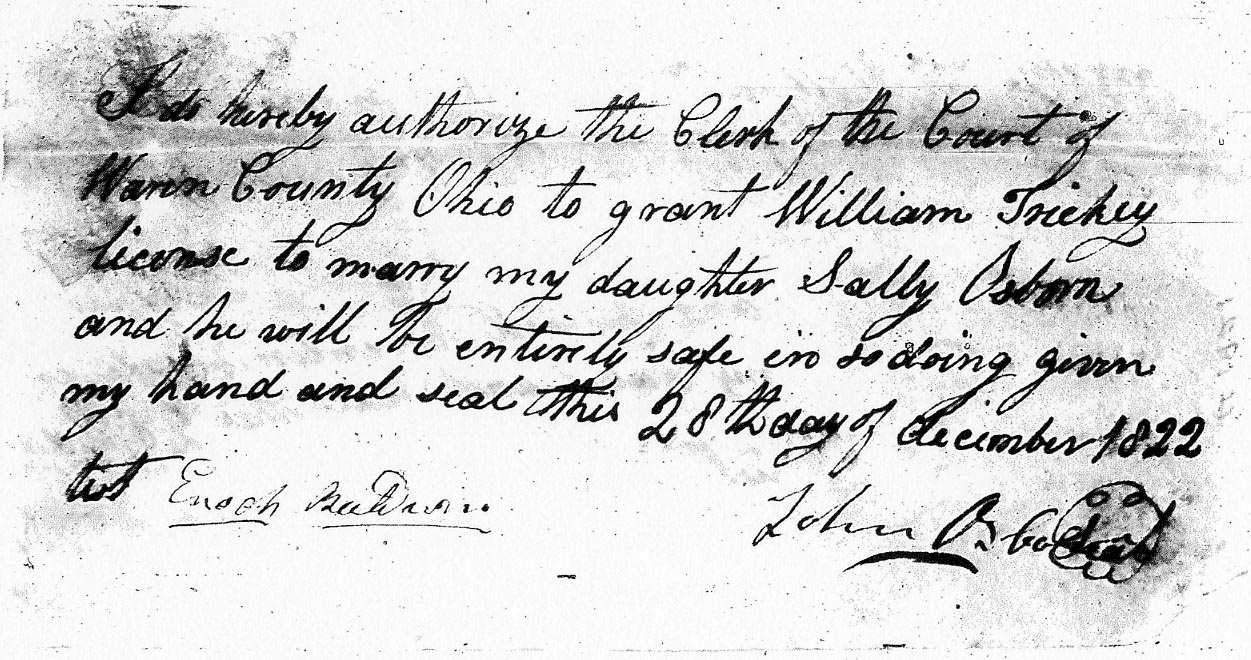 I do hereby authorize the Clerk of the Court of
Waren County Ohio to grant William Trickey
license to marry my daughter Sally Osborn
and he will be entirely safe in so doing given
my hand and seal this 28th day of december 1822
test Enoch Baldwin
John Osbo Seal